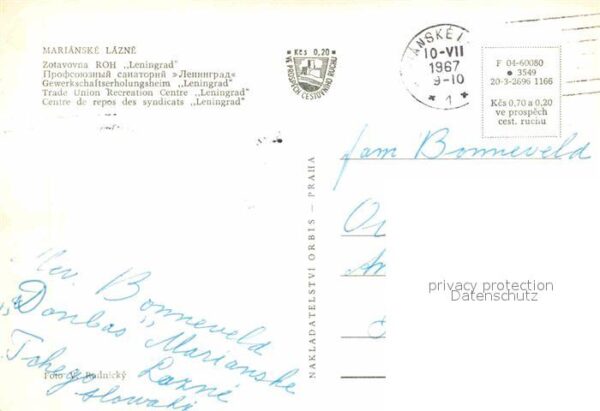 MARIÁNSKÉ LÁZNĚ
Zotavovna ROH „Leningrad"
Профсоюзный санаторий »Ленинград«
Gewerkschaftserholungsheim „Leningrad"
Trade Union Recreation Centre „Leningrad"
Centre de repos des syndicats „Leningrad"
Kčs 0,20
VE PROSPĚCH CESTOVNÍHO RUCHU
10-VII
1967
9-10
* 1 *
F 04-60080
● 3549
20-3-2696 1166
Kčs 0.70 a 0,20
ve prospěch
cest. ruchu
NAKLADATELSTVÍ ORBIS — PRAHA
fam Bonneveld
privacy protection
Datenschutz
Bonneveld
„Donbas„ Marianske
Lazne
Tchego
slowaki
Foto V. Rudnický